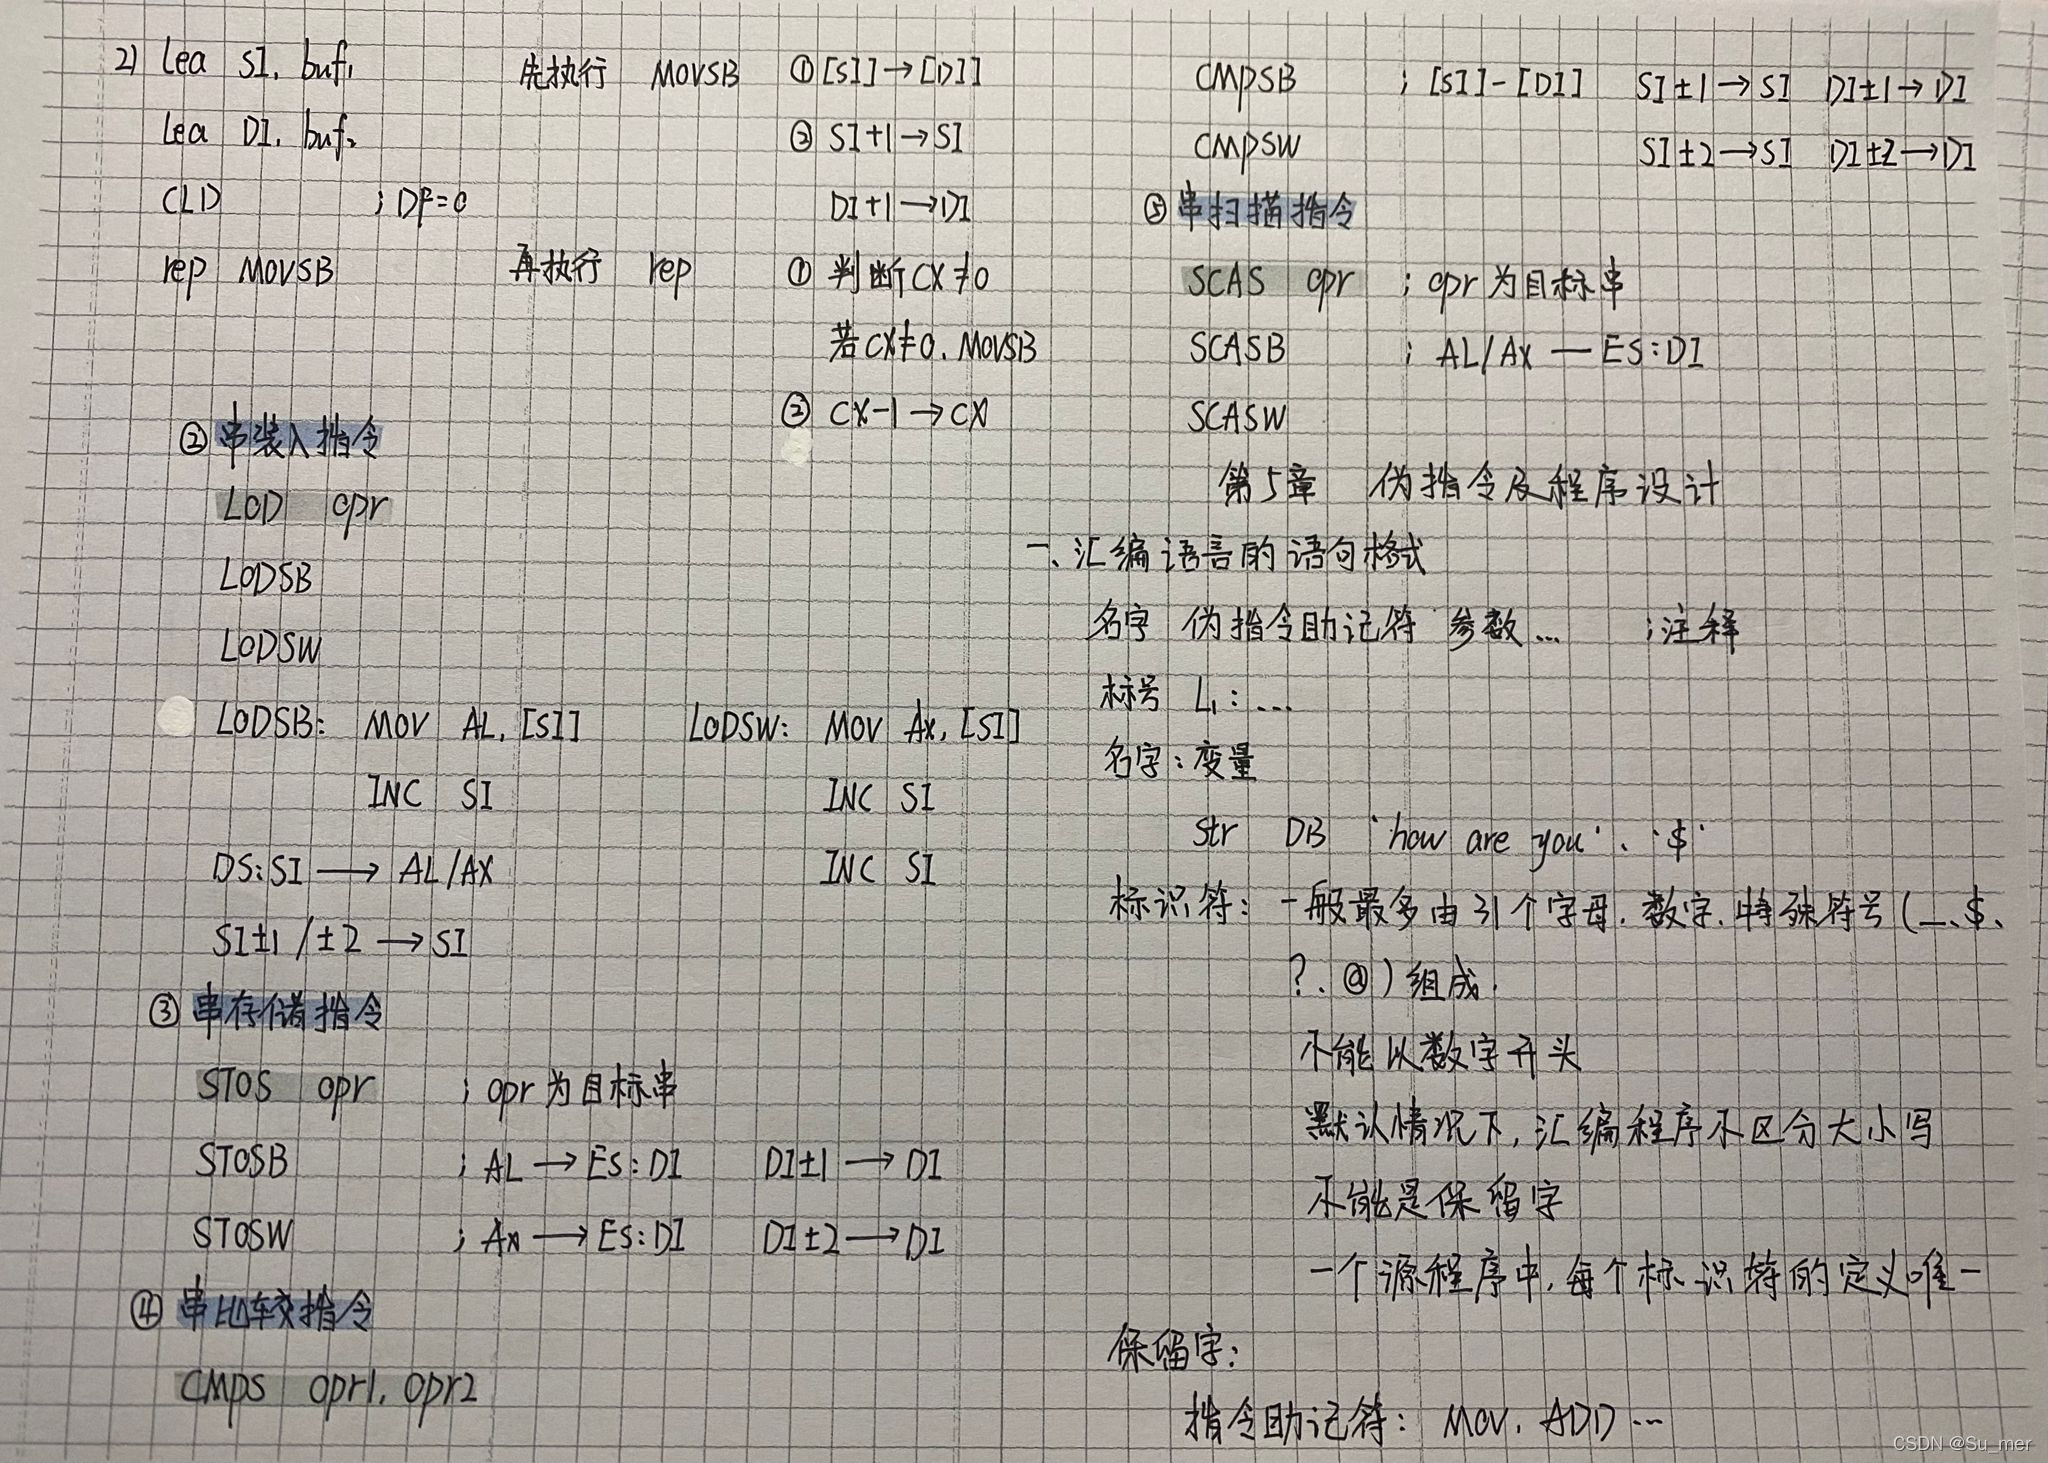 2) Lea SI, buf1
Lea DI, buf2
CLD ; DF=0
rep MOVSB
先执行 MOVSB ①[SI]→[DI]
② SI+1→SI
DI+1→DI
再执行 rep ① 判断CX≠0
若CX≠0, MOVSB
② CX-1→CX
② 串装入指令
LOD opr
LODSB
LODSW
LODSB: MOV AL, [SI] LODSW: MOV AX, [SI]
INC SI INC SI
INC SI
DS:SI → AL/AX
SI±1/±2 → SI
③ 串存储指令
STOS opr ; opr为目标串
STOSB ; AL → ES:DI DI±1 → DI
STOSW ; AX → ES:DI DI±2 → DI
④ 串比较指令
CMPS opr1, opr2
CMPSB ; [SI]-[DI] SI±1→SI DI±1→DI
CMPSW SI±2→SI DI±2→DI
⑤ 串扫描指令
SCAS opr ; opr为目标串
SCASB ; AL/AX — ES:DI
SCASW
第5章 伪指令及程序设计
一、汇编语言的语句格式
名字 伪指令助记符 参数... ;注释
标号 L1: ...
名字: 变量
str DB 'how are you', '$'
标识符: 一般最多由31个字母、数字、特殊符号(_、$、
?、@)组成.
不能以数字开头
默认情况下, 汇编程序不区分大小写
不能是保留字
一个源程序中, 每个标识符的定义唯一
保留字:
指令助记符: MOV、ADD...
CSDN @Su_mer